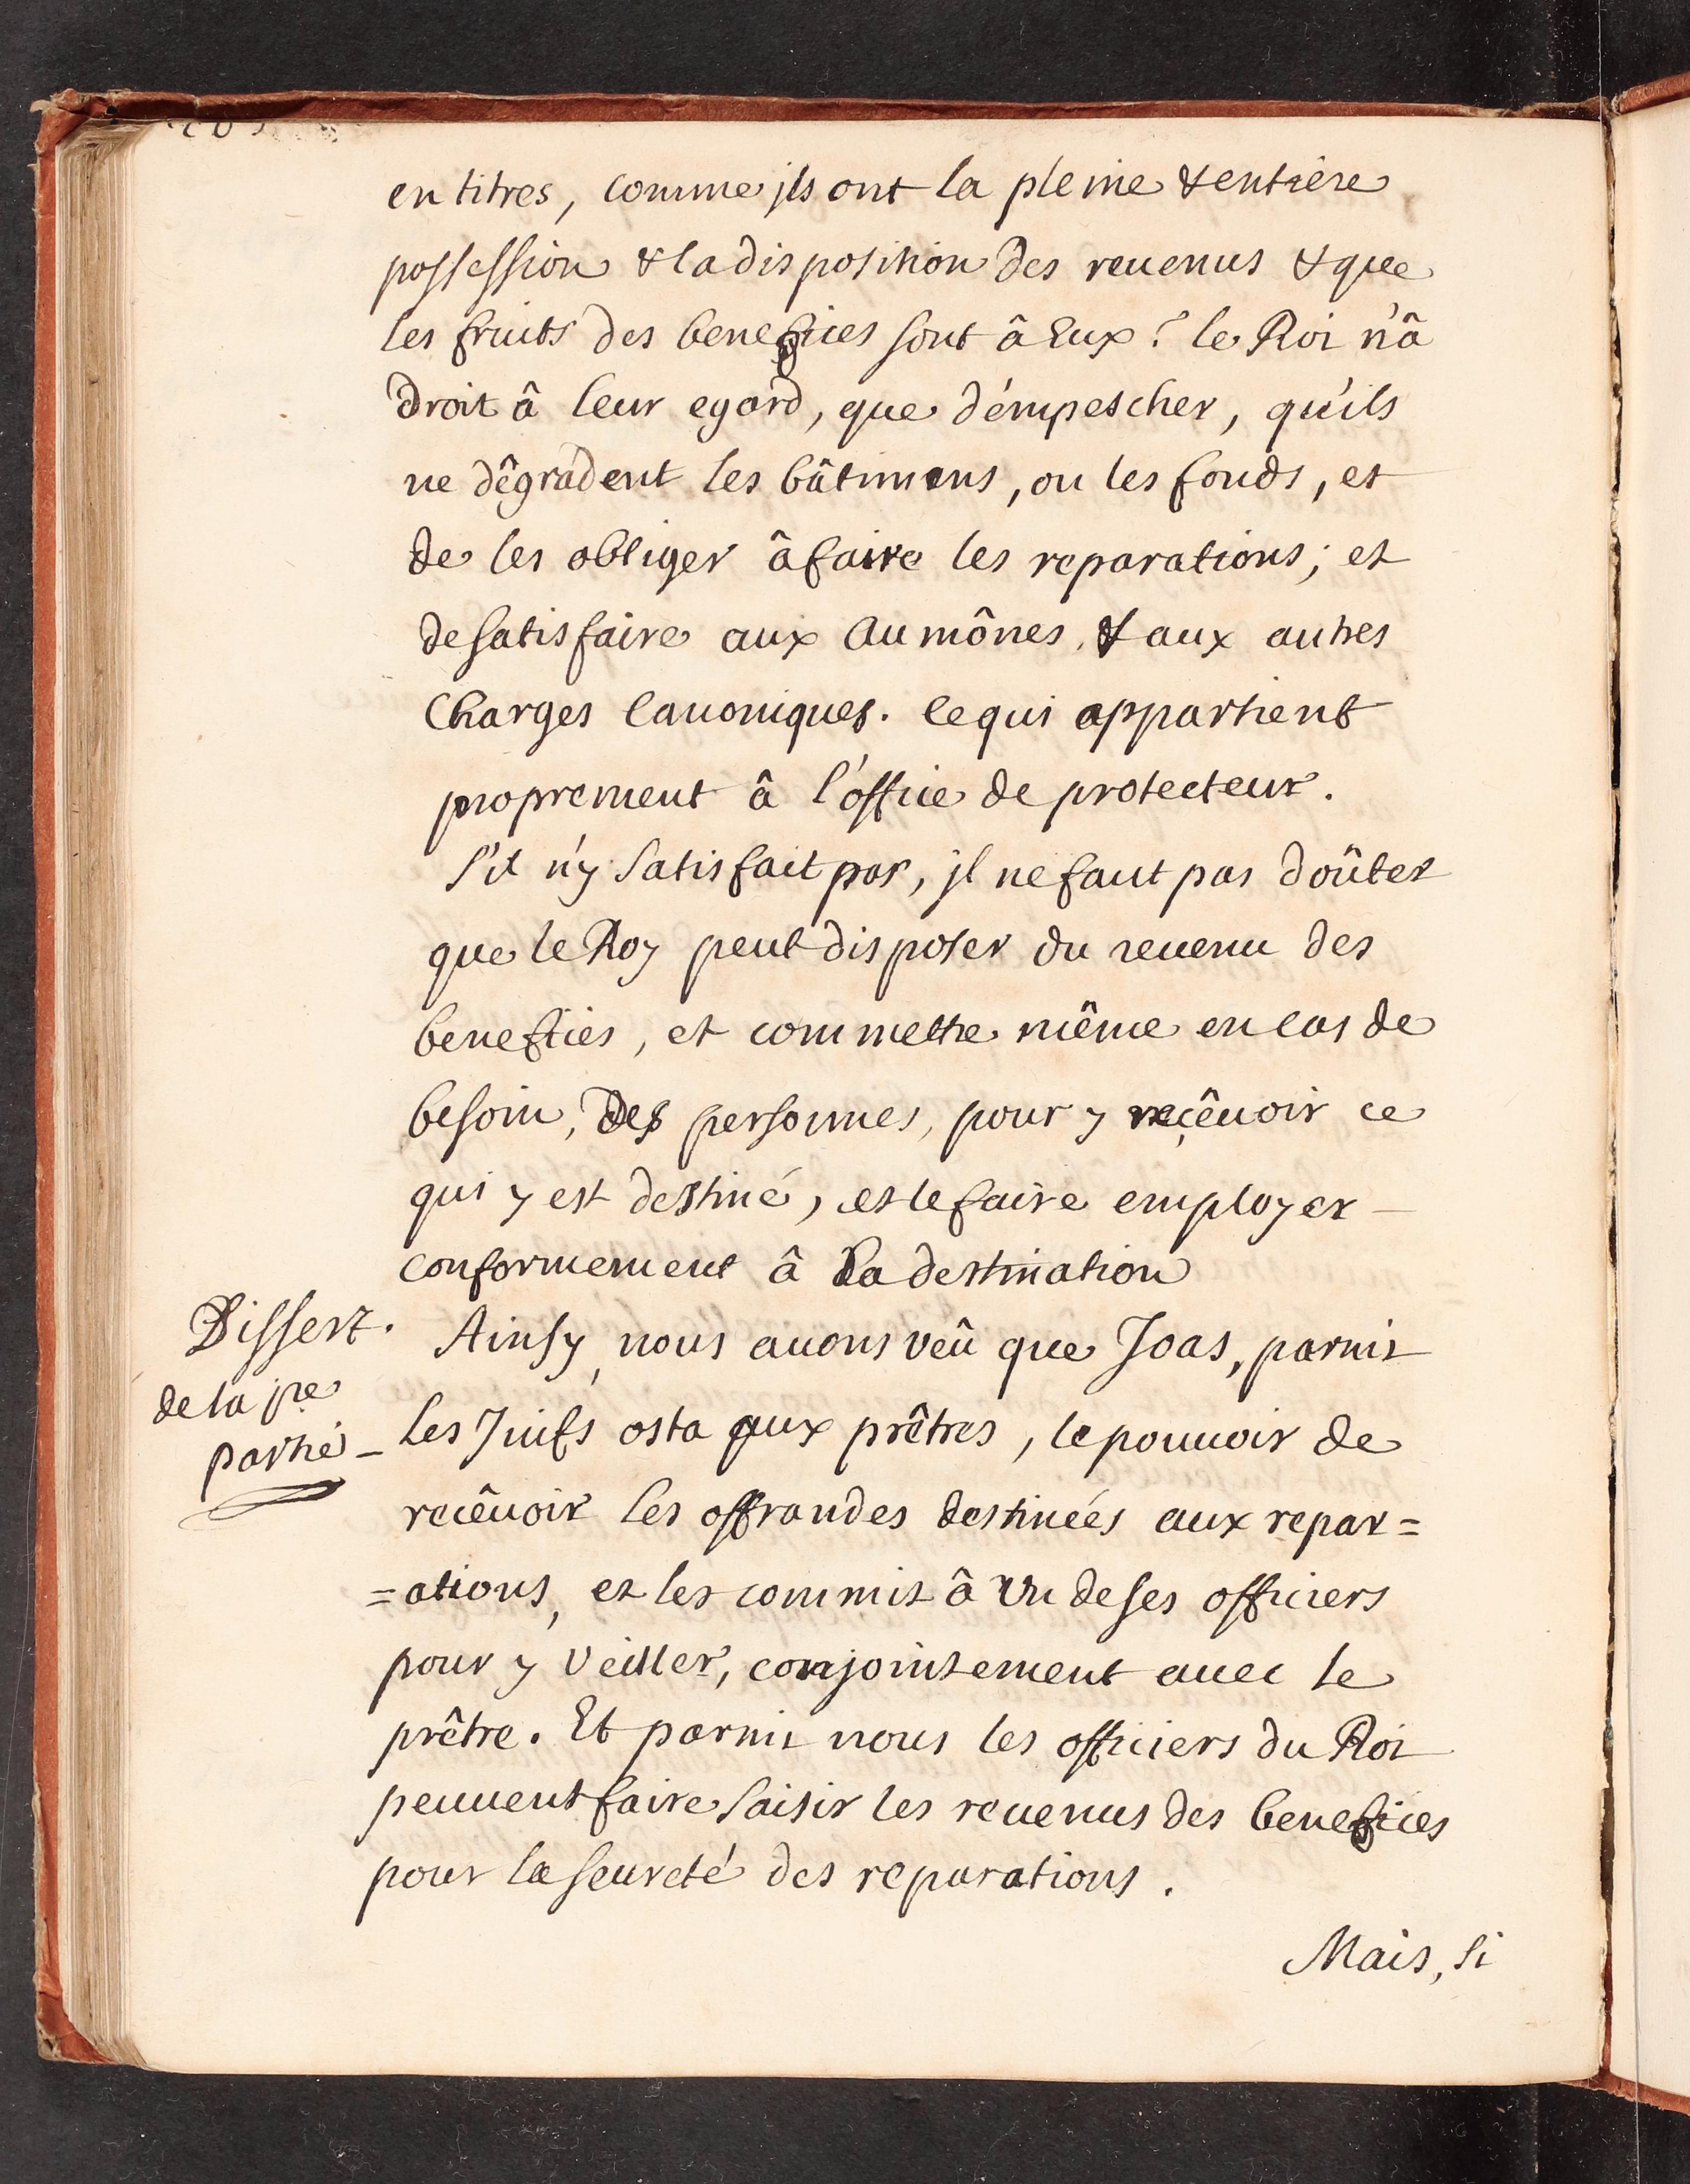 en titres, comme jls ont la pleine & entière
possession & la disposition des reuenus & que
les fruits des benefices sont â Eux? le Roi n'â
Droit â leur egard, que d'émpescher, qu'ils
ne dêgradent les bâtimens, ou les fonds, et
de les obliger â faire les reparations; et
de satisfaire aux Aumônes, & aux autres
Charges Canoniques. Ce qui appartient
proprement â l'office de protecteur.
S'il n'y satisfait pas, jl ne faut pas doûter
que le Roy peut disposer du reuenu des
benefices, et commettre même en cas de
besoin, Des personnes, pour y reçêuoir ce
qui y est destiné, et le faire employer
conformement â la destination
Dissert.
de la pre
partie
Ainsy, nous auons veû que Joas, parmi
les Juifs osta aux prêtres, le pouuoir de
recêuoir les offrandes destineés aux repar=
=ations, et les commit â Un de ses officiers
pour y Veiller, conjointement auec le
prêtre. Et parmi nous les officiers du Roi
peuuent faire saisir les reuenus des benefices
pour la seureté des reparations.
Mais, si